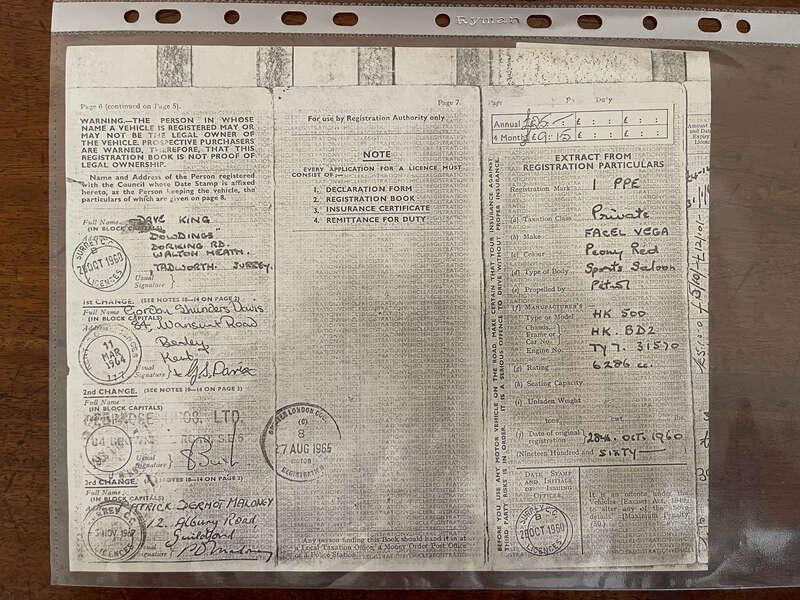 Ryman
Page 6 (continued on Page 5).
WARNING.—THE PERSON IN WHOSE
NAME A VEHICLE IS REGISTERED MAY OR
MAY NOT BE THE LEGAL OWNER OF
THE VEHICLE. PROSPECTIVE PURCHASERS
ARE WARNED, THEREFORE, THAT THIS
REGISTRATION BOOK IS NOT PROOF OF
LEGAL OWNERSHIP.
Name and Address of the Person registered
with the Council whose Date Stamp is affixed
hereto, as the Person keeping the vehicle, the
particulars of which are given on page 8.
Full Name DAVE KING
(IN BLOCK CAPITALS)
DOWDINGS
DORKING RD.
WALTON HEATH.
TADWORTH. SURREY.
Usual
Signature
SURREY C.C.
8
28 OCT 1960
LICENCES
1ST CHANGE. (SEE NOTES 10—14 ON PAGE 2)
Full Name Gordon Saunders Davis
(IN BLOCK CAPITALS)
Address 84, Wansunt Road
Bexley
Kent
Usual
Signature G S Davis
11
MAR
1964
2nd CHANGE. (SEE NOTES 10—14 ON PAGE 2)
Full Name
(IN BLOCK CAPITALS)
BROS. LTD.
ROAD, S.E.6
Usual
Signature
3rd CHANGE. (SEE NOTES 10—14 ON PAGE 2)
Full Name
(IN BLOCK CAPITALS)
PATRICK DERMOT MALONEY
12. Albury Road,
Guildford
Usual
Signature P D Maloney
SURREY C.C.
NOV 1967
LICENCES
Page 7.
For use by Registration Authority only
NOTE
EVERY APPLICATION FOR A LICENCE MUST
CONSIST OF:—
1. DECLARATION FORM
2. REGISTRATION BOOK
3. INSURANCE CERTIFICATE
4. REMITTANCE FOR DUTY
GREATER LONDON COUNCIL
(6)
8
27 AUG 1965
Any person finding this Book should hand it in at
a Local Taxation Office, a Money Order Post Office
or a Police Station.
BEFORE YOU USE ANY MOTOR VEHICLE ON THE ROAD MAKE CERTAIN THAT YOUR INSURANCE AGAINST
THIRD PARTY RISKS IS IN ORDER. IT IS A SERIOUS OFFENCE TO DRIVE WITHOUT PROPER INSURANCE.
Page
Duty
Annual £ : £ : £ :
4 Month £ : £ : £ :
EXTRACT FROM
REGISTRATION PARTICULARS
Registration Mark 1 PPE
(a) Taxation Class Private
(b) Make FACEL VEGA
(c) Colour Peony Red
(d) Type of Body Sports Saloon
(e) Propelled by Petrol
(f) MANUFACTURER'S
Type or Model HK 500
Chassis, Frame or Car No. HK. BD2
Engine No. TY7. 31570
(g) Rating 6286 cc.
(h) Seating Capacity
(i) Unladen Weight
tons cwt
(j) Date of original registration 28th. OCT. 1960
(Nineteen Hundred and SIXTY—
DATE STAMP
AND INITIALS
OF ISSUING
OFFICER
SURREY C.C.
8
28 OCT 1960
LICENCES